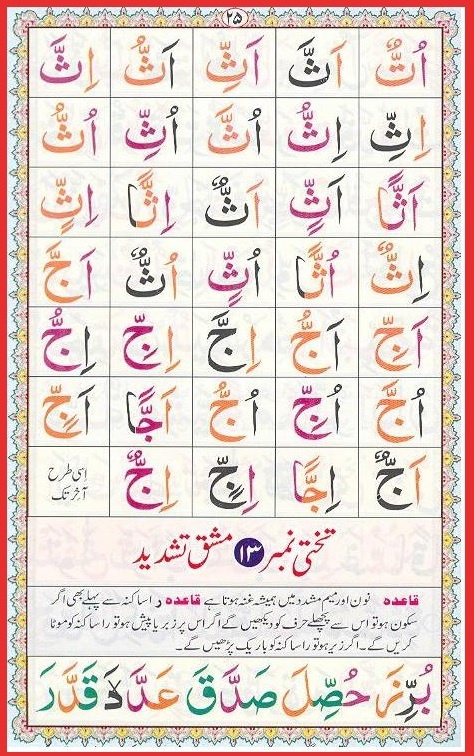 ۲۵
اُتٌّ اَثَّ اَثِّ اَثُّ اِثَّ
اِثِّ اِثُّ اُثَّ اُثِّ اُثُّ
اَثًّا اَثٍّ اَثٌّ اِثًّا اِثٍّ
اِثٌّ اُثًّا اُثٍّ اُثٌّ اَجَّ
اَجِّ اَجُّ اِجَّ اِجِّ اِجُّ
اُجَّ اُجِّ اُجُّ اَجًّا اَجٍّ
اَجٌّ اِجًّا اِجٍّ اِجٌّ اسی طرح
آخر تک
تختی نمبر ۱۳ مشق تشدید
قاعدہ نون اور میم مشدد میں ہمیشہ غنہ ہوتا ہے قاعدہ ر ا ساکنہ سے پہلے بھی اگر
سکون ہو تو اس سے پچھلے حرف کو دیکھیں گے اگر اس پر زبر یا پیش ہو تو را ساکنہ کو موٹا
کریں گے۔ اگر زیر ہو تو را ساکنہ کو باریک پڑھیں گے۔
بُرِّزَ حُصِّلَ صَدَّقَ عَدَّلَ قَدَّرَ